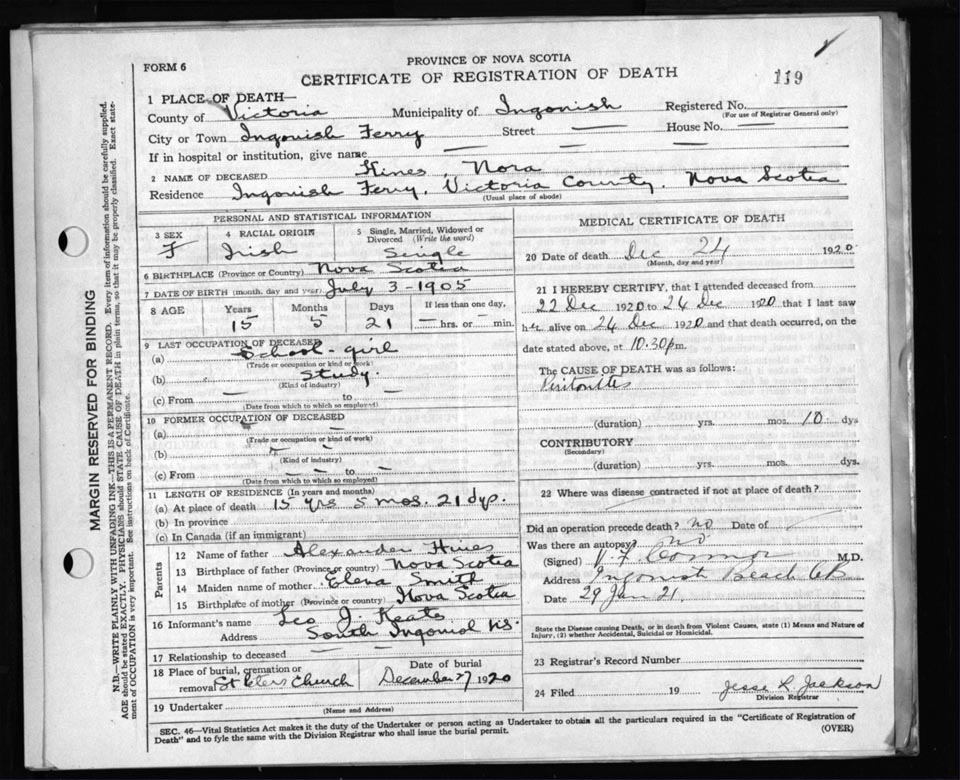 FORM 6
PROVINCE OF NOVA SCOTIA
CERTIFICATE OF REGISTRATION OF DEATH
119
1 PLACE OF DEATH—
County of Victoria Municipality of Ingonish Registered No.
(For use of Registrar General only)
City or Town Ingonish Ferry Street — House No. —
If in hospital or institution, give name — —
2 NAME OF DECEASED Hines, Nora
Residence Ingonish Ferry, Victoria County, Nova Scotia
(Usual place of abode)
PERSONAL AND STATISTICAL INFORMATION
3 SEX F
4 RACIAL ORIGIN Irish
5 Single, Married, Widowed or Divorced (Write the word) Single
6 BIRTHPLACE (Province or Country) Nova Scotia
7 DATE OF BIRTH (month, day and year) July 3 - 1905
8 AGE Years Months Days If less than one day,
15 5 21 — hrs. or — min.
9 LAST OCCUPATION OF DECEASED
(a) School-girl
(Trade or occupation or kind of work)
(b) Study.
(Kind of industry)
(c) From — to —
(Date from which to which so employed)
10 FORMER OCCUPATION OF DECEASED
(a) —
(Trade or occupation or kind of work)
(b) —
(Kind of industry)
(c) From — — to —
(Date from which to which so employed)
11 LENGTH OF RESIDENCE (In years and months)
(a) At place of death 15 yrs 5 mos. 21 dys.
(b) In province
(c) In Canada (if an immigrant)
Parents
12 Name of father Alexander Hines
13 Birthplace of father (Province or country) Nova Scotia
14 Maiden name of mother Smith
15 Birthplace of mother (Province or country) Nova Scotia
16 Informant's name Leo J. Keats
Address South Ingonish N.S.
17 Relationship to deceased — —
18 Place of burial, cremation or removal St Church
Date of burial December 27 1920
19 Undertaker
(Name and Address)
MEDICAL CERTIFICATE OF DEATH
20 Date of death Dec 24 1920
(Month, day and year)
21 I HEREBY CERTIFY, that I attended deceased from
22 Dec 1920 to 24 Dec 1920 that I last saw
h er alive on 24 Dec 1920 and that death occurred, on the
date stated above, at 10.30 p m.
The CAUSE OF DEATH was as follows:
(duration) yrs. mos. 10 dys
CONTRIBUTORY
(Secondary)
(duration) yrs. mos. dys.
22 Where was disease contracted if not at place of death?
Did an operation precede death? no Date of
Was there an autopsy? No
(Signed) M.D.
Address Ingonish Beach CB
Date 29 Jan 21.
State the Disease causing Death, or in death from Violent Causes, state (1) Means and Nature of
Injury, (2) whether Accidental, Suicidal or Homicidal.
23 Registrar's Record Number
24 Filed 19 Jesse L Jackson
Division Registrar
SEC. 46—Vital Statistics Act makes it the duty of the Undertaker or person acting as Undertaker to obtain all the particulars required in the "Certificate of Registration of
Death" and to fyle the same with the Division Registrar who shall issue the burial permit.
(OVER)
MARGIN RESERVED FOR BINDING
N.B.—WRITE PLAINLY WITH UNFADING INK—THIS IS A PERMANENT RECORD. Every item of information should be carefully supplied.
AGE should be stated EXACTLY. PHYSICIANS should STATE CAUSE OF DEATH in plain terms, so that it may be properly classified. Exact state-
ment of OCCUPATION is very important. See instructions on back of Certificate.